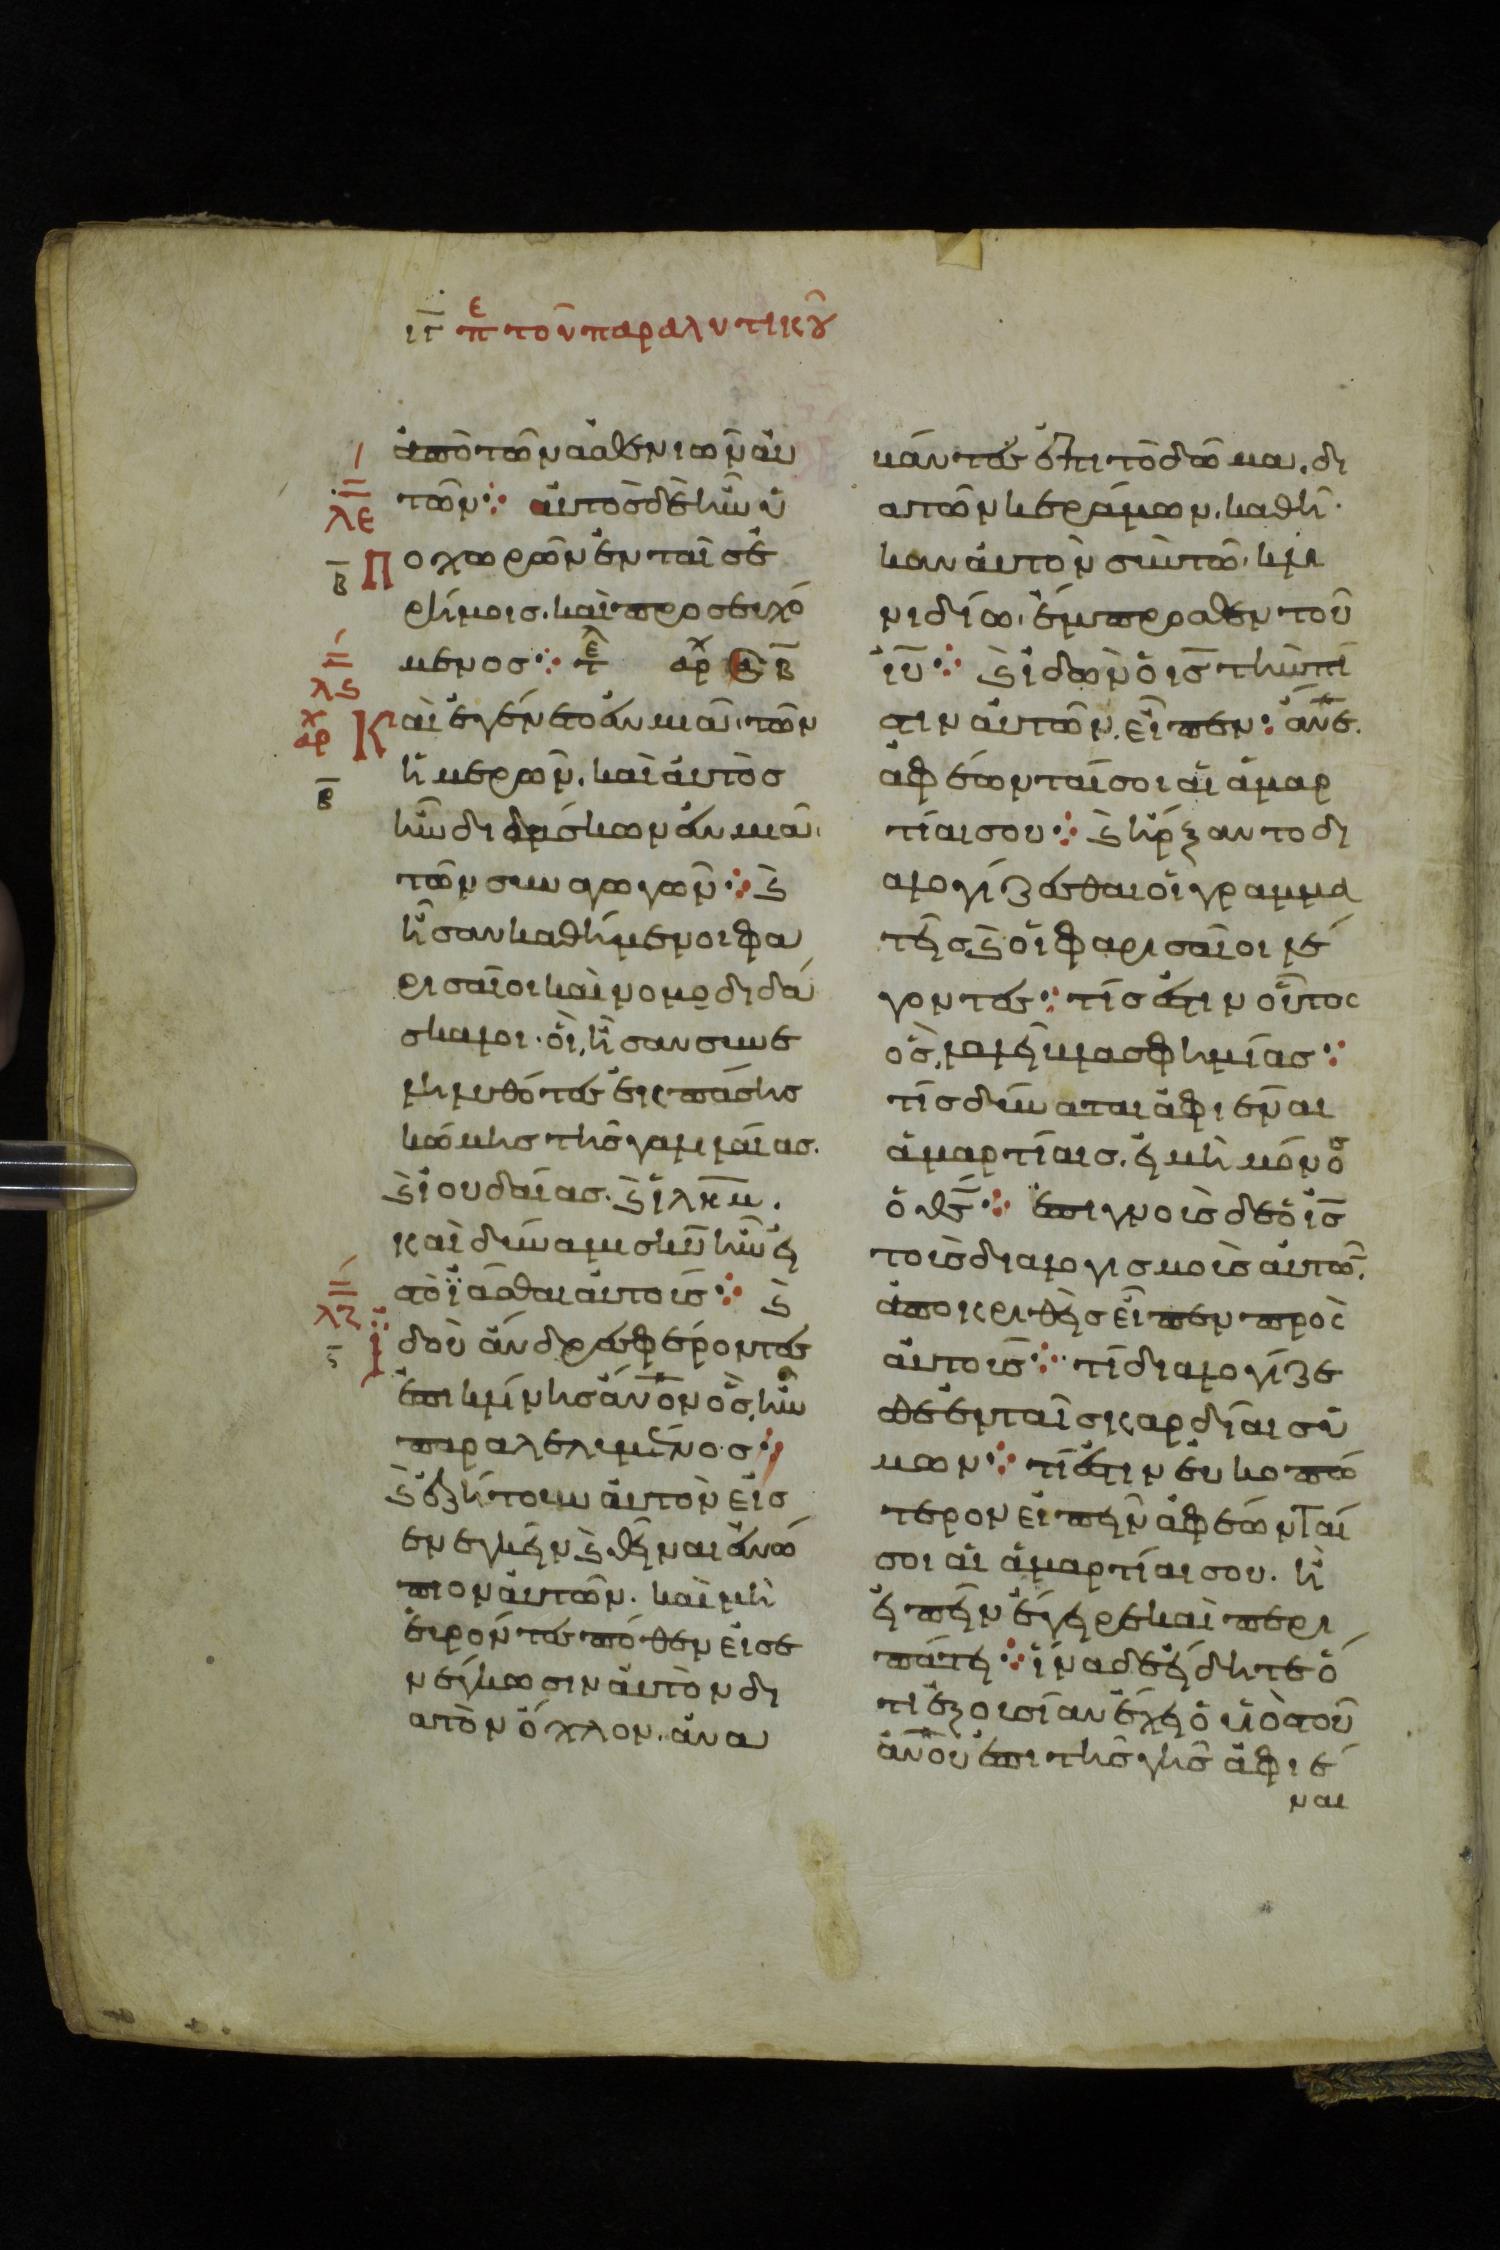 ιγ πε τοῦ παραλυτικοῦ
ἀπὸ τῶν ἀσθενιῶν αὐ
τῶν ⁘ αὐτὸς δὲ ἦν ὑ
λε
β
Ποχωρῶν ἐν ταῖς ἐ
ρήμοις. καὶ προσευχό
μενος ⁘ τε αρχ β
λϛ
αρχ
Καὶ ἐγένετο ἐν μιᾶ τῶν
β
ἡμερῶν. καὶ αὐτὸς
ἦν διδάσκων ἐν μιᾶ
τῶν συναγωγῶν ⁘ ϗ
ἦσαν καθήμενοι φα
ρισαῖοι καὶ νομοδιδά
σκαλοι. οἳ, ἦσαν συνε
ληλυθότες ἐκ πάσης
κώμης τῆς γαλιλαίας.
ϗ ἰουδαίας. ϗ ἰλημ.
καὶ δύναμις κυ ἦν εἰ
σ τὸ ἰᾶσθαι αὐτούς ⁘ ϗ
λζ
ϛ
Ἰδοὺ ἄνδρες φέροντες
ἐπὶ κλίνης ἄνον ὃς, ἦν
παραλελυμένος ⁘
ϗ ἐζήτουν αὐτὸν εἰσ
ενεγκεῖν ϗ θεῖναι ἐνώ
πιον αὐτῶν. καὶ μὴ
εὑρόντες πόθεν εἰσε
νέγκωσιν αὐτὸν δι
α τὸν ὄχλον. ἀνα
βάντες ἐπὶ τὸ δῶμα. δι
α τῶν κεράμων. καθῆ
καν αὐτὸν σὺν τῶ κλι
νιδίω. ἔμπροσθεν τοῦ
ἰυ ⁘ ϗ ἰδὼν ὁ ις τὴν πί
στιν αὐτῶν. εἶπεν ⁘ ἄνε.
ἀφέωνταί σοι αἱ ἁμαρ
τίαι σου ⁘ ϗ ἤρξαντο δι
αλογίζεσθαι οἱ γραμμα
τεῖς ϗ οἱ φαρισαῖοι λέ
γοντες ⁘ τίς ἐστιν οὗτος
ὃς, λαλεῖ βλασφημίας ⁘
τίς δύναται ἀφιέναι
ἁμαρτίαις. εἰ μὴ μόνος
ὁ θς ⁘ ἐπιγνοὺς δὲ ὁ ις
τοὺς διαλογισμοὺς αὐτῶν,
ἀποκριθεὶς εἶπεν πρὸς
αὐτούς ⁘ τί διαλογίζε
σθε ἐν ταῖς καρδίαις ὑ
μων ⁘ τί ἐστιν εὐκοπώ
τερον εἰπεῖν ἀφέωνταί
σοι αἱ ἁμαρτίαι σου. ἢ
εἰπεῖν ἔγειρε καὶ περι
πάτει ⁘ ἵνα δὲ εἰδῆτε ὅ
τι ἐξουσίαν ἔχει ὁ υἱὸς τοῦ
ἀνου ἐπὶ τῆς γῆς ἀφιέ
ναι